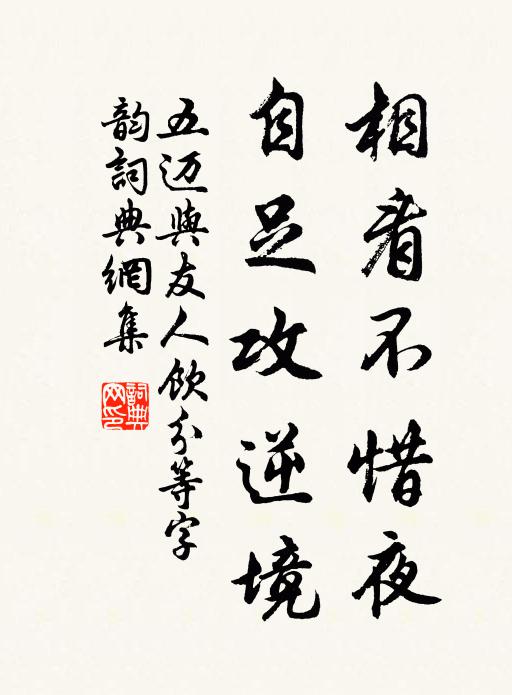 相看不惜夜
自足攻逆境
五迈與友人飲分等字
韵詞典網集
詞典
网印